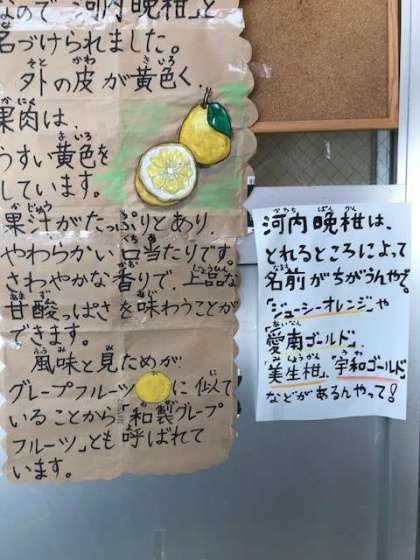 なので「河内晩柑」と
名づけられました。
外の皮が黄色く、
果肉は、
うすい黄色を
しています。
果汁がたっぷりとあり、
やわらかい口当たりです。
さわやかな香りで、上品な
甘酸っぱさを味わうことが
できます。
風味と見ためが
グレープフルーツ に似て
いることから「和製グレープ
フルーツ」とも呼ばれて
います。
河内晩柑は、
とれるところによって
名前がちがうんやで。
「ジューシーオレンジ」や
「愛南ゴールド」、
「美生柑」、「宇和ゴールド」
などがあるんやって!